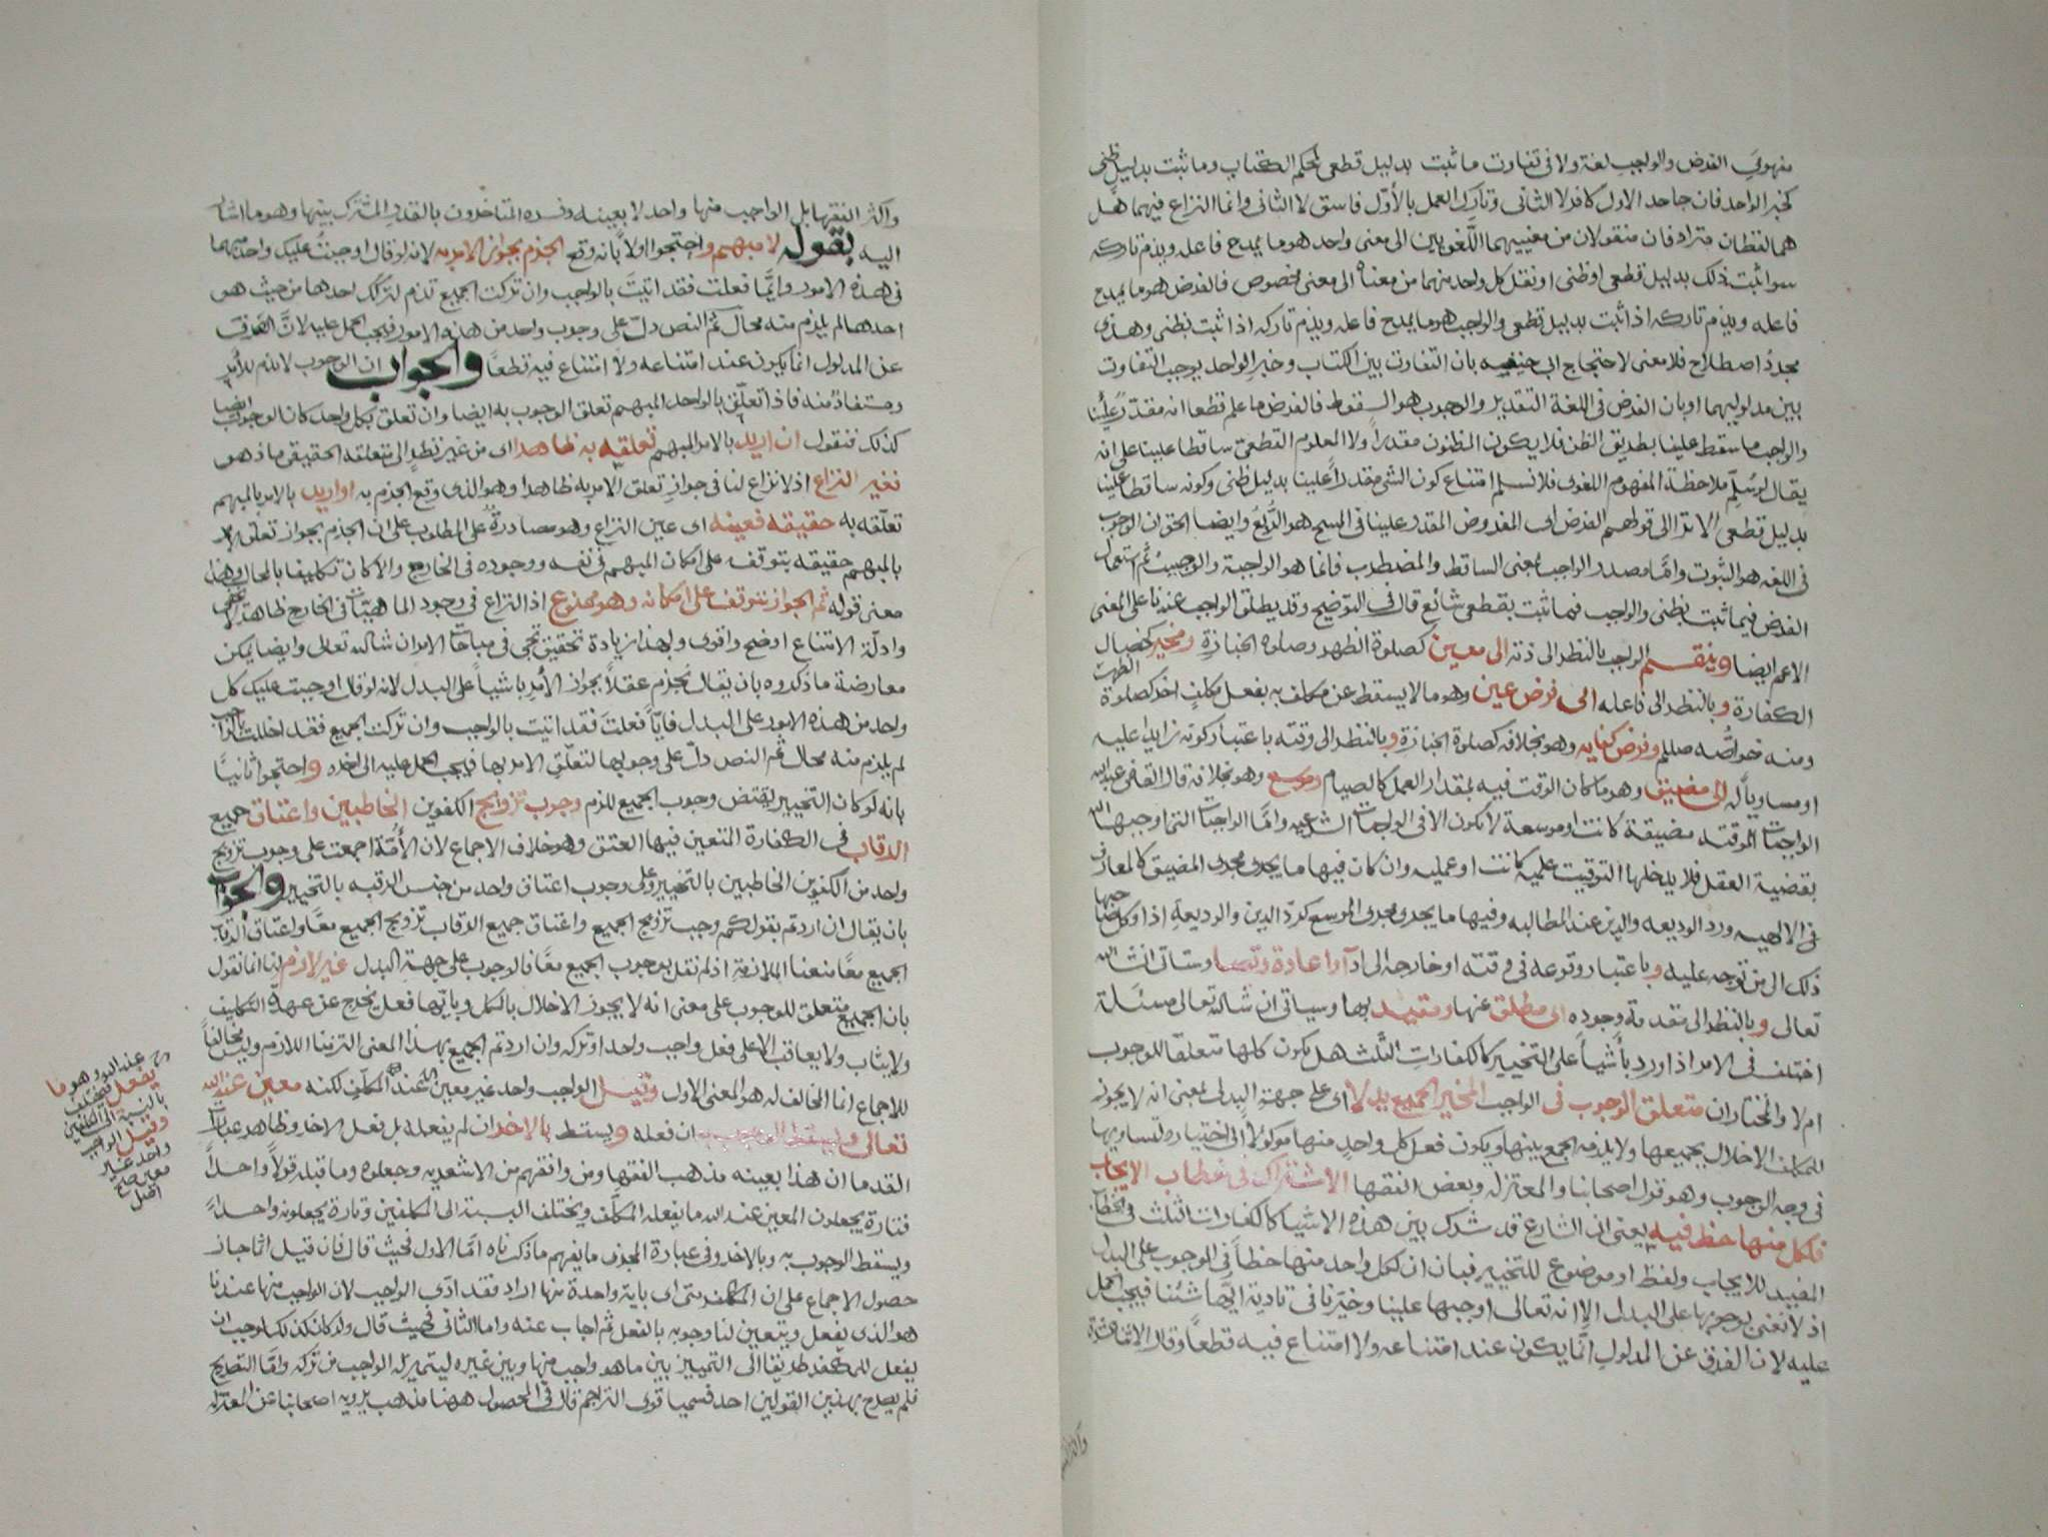 مفهومي الفرض والواجب لغة ولا في تفاوت ما ثبت بدليل قطعي كمحكم الكتاب وما ثبت بدليل ظني
كخبر الواحد فان جاحد الاول كافر لا الثاني وتارك العمل بالاول فاسق لا الثاني وانما النزاع فيهما هل
هما لفظان مترادفان منقولان من معنييهما اللغويين الى معنى واحد هو ما يمدح فاعله ويذم تاركه
سوا ثبت ذلك بدليل قطعي او ظني او نقل كل واحد منهما من معناه الى معنى مخصوص فالفرض هو ما يمدح
فاعله ويذم تاركه اذا ثبت بدليل قطعي والواجب هو ما يمدح فاعله ويذم تاركه اذا ثبت بظني وهذي
مجرد اصطلاح فلا معنى لاحتجاج ابي حنيفه بان التفاوت بين الكتاب وخبر الواحد يوجب التفاوت
بين مدلوليهما او بان الفرض في اللغة التقدير والوجوب هو السقوط فالفرض ما علم قطعا انه مقدر علينا
والواجب ما سقط علينا بطريق الظن فلا يكون المظنون مقدرا ولا المعلوم القطعي ساقطا علينا على انه
يقال لو سلم ملاحظة المفهوم اللغوي فلا نسلم امتناع كون الشي مقدرا علينا بدليل ظني وكونه ساقطا علينا
بدليل قطعي الا ترا الى قولهم الفرض اي المفروض المقدر علينا في المسح هو الربع وايضا الحق ان الوجوب
في اللغه هو الثبوت واما مصدر الواجب بمعنى الساقط والمضطرب فانما هو الوجبة والوجيب ثم استعمال
الفرض فيما ثبت بظني والواجب فيما ثبت بقطعي شائع قال في التوضيح وقد يطلق الواجب عندنا على المعنى
الاعم ايضا وينقسم الواجب بالنظر الى ذته الى معين كصلوة الظهر وصلوة الجنازة ومخير كخصال
الكفارة وبالنظر الى فاعله الى فرض عين وهو ما لا يسقط عن مكلف به بفعل مكلف اخر كصلوة الظهر
ومنه خواصه صلعم وفرض كفايه وهو بخلافه كصلوة الجنازة وبالنظر الى وقته باعتبار كونه زايدا عليه
او مساويا له الى مضيق وهو ما كان الوقت فيه بمقدار العمل كالصيام وموسع وهو بخلافه قال القاضي عبد الله
الواجبات الموقته مضيقة كانت او موسعة لا تكون الا في الواجبات الشرعيه واما الواجبات التي اوجبها الله
بقضية العقل فلا يدخلها التوقيت علميه كانت او عمليه وان كان فيها ما يجري مجرى المضيق كالمعارف
في الالهيه ورد الوديعه والدين عند المطالبه وفيها ما يجري مجرى الموسع كرد الدين والوديعة اذا وكل صاحبها
ذلك الى من توجه عليه وباعتبار وقوعه في وقته او خارجه الى اداء واعادة وقضا وستاتي انشا الله
تعالى وبالنظر الى مقدمة وجوده الى مطلق عنها ومقيد بها وسياتي ان شا الله تعالى مسئلة
اختلف في الامر اذا ورد باشيا على التخيير كالكفارات الثلث هل يكون كلها متعلقا للوجوب
ام لا والمختار ان متعلق الوجوب في الواجب المخير الجميع بدلا اي على جهة البدل بمعنى انه لا يجوز
للمكلف الاخلال بجميعها ولا يلزمه الجمع بينها ويكون فعل كل واحد منها موكولا الى اختياره لتساويها
في وجه الوجوب وهو قول اصحابنا والمعتزله وبعض الفقها الاشتراك في خطاب الايجاب
فلكل منها حظ فيه يعني ان الشارع قد شرك بين هذه الاشيا كالكفارات الثلث في الخطاب
المفيد للايجاب ولفظ او موضوع للتخيير فبان ان لكل واحد منها حظا في الوجوب على البدل
اذ لا نعني بوجوبها على البدل الا انه تعالى اوجبها علينا وخيرنا في تادية ايها شئنا فيجب الحمل
عليه لان الفرق عن المدلول انما يكون عند امتناعه ولا امتناع فيه قطعا وقال الاشاعرة
واكثر الفقها بل الواجب منها واحد لا بعينه وفسره المتاخرون بالقدر المشترك بينها وهو ما اشار
اليه بقوله لا مبهم واحتجوا اولا بانه وقع الجزم بجواز الامر به لانه لو قال اوجبت عليك واحدا مبهما
في هذه الامور وايما فعلت فقد اتيت بالواجب وان تركت الجميع تذم لتركك احدها من حيث هو
احدها لم يلزم منه محال ثم النص دل على وجوب واحد من هذه الامور فيجب الحمل عليه لان الصرف
عن المدلول انما يكون عند امتناعه ولا امتناع فيه قطعا والجواب ان الوجوب لازم للامر
ومستفاد منه فاذا تعلق بالواحد المبهم تعلق الوجوب به ايضا وان تعلق بكل واحد كان الوجوب ايضا
كذلك فنقول ان اريد بالامر المبهم تعلقه به ظاهرا اي من غير نظر الى متعلقه الحقيقي ماذا هو
فغير النزاع اذ لا نزاع لنا في جواز تعلق الامر به ظاهرا وهو الذي وقع الجزم به او اريد بالامر بالمبهم
تعلقه به حقيقه فعينه اي عين النزاع وهو مصادرة على المطلوب على ان الجزم بجواز تعلق الامر
بالمبهم حقيقه يتوقف على امكان المبهم في نفسه ووجوده في الخارج والا كان تكليفا بالمحال وهذا
معنى قوله ثم الجواز يتوقف على امكانه وهو ممنوع اذ النزاع في وجود الماهيات في الخارج ظاهر لا يخفى
وادلة الامتناع اوضح واقوى ولهذا زيادة تحقيق تجي في مباحث الامر ان شا الله تعالى وايضا يمكن
معارضة ما ذكروه بان يقال نجزم عقلا بجواز الامر باشيا على البدل لانه لو قال اوجبت عليك كل
واحد من هذه الامور على البدل فايا فعلت فقد اتيت بالواجب وان تركت الجميع فقد اخللت بالواجب
لم يلزم منه محال ثم النص دل على وجوبها لتعلق الامر بها فيجب الحمل عليه الى اخره واحتجوا ثانيا
بانه لو كان التخيير يقتضي وجوب الجميع للزم وجوب تزويج الكفوين الخاطبين واعتاق جميع
الرقاب في الكفارة المتعين فيها العتق وهو خلاف الاجماع لان الامة اجمعت على وجوب تزويج
واحد من الكفوين الخاطبين بالتخيير وعلى وجوب اعتاق واحد من جنس الرقبه بالتخيير والجواب
بان يقال ان اردتم بقولكم وجب تزويج الجميع واعتاق جميع الرقاب تزويج الجميع معا واعتاق الرقاب
الجميع معا منعنا الملازمة اذ لم نقل بوجوب الجميع معا فالوجوب على جهة البدل غير لازم لانا انما نقول
بان الجميع متعلق للوجوب على معنى انه لا يجوز الاخلال بالكل وبايها فعل يخرج عن عهدة التكليف
ولا يثاب ولا يعاقب الا على فعل واجب واحد او تركه وان اردتم الجميع بهذا المعنى التزمنا اللازم وليس مخالفا
للاجماع انما المخالف له هو المعنى الاول وقيل الواجب واحد غير معين عند المكلف لكنه معين عند الله
تعالى ويسقط الوجوب به ان فعله ويسقط بالاخر ان لم يفعله بل فعل الاخر وظاهر عبارات
القدما ان هذا بعينه مذهب الفقها ومن وافقهم من الاشعريه وجعلوه وما قبله قولا واحدا
فتارة يجعلون المعين عند الله ما يفعله المكلف ويختلف بالنسبة الى المكلفين وتارة يجعلونه واحدا
ويسقط الوجوب به وبالاخر وفي عبارة المجزي ما يفهم ما ذكرناه اما الاول فحيث قال فان قيل انما جاز
حصول الاجماع على ان المكلف متى اتى باية واحدة منها اراد فقد ادى الواجب لان الواجب منها عندنا
هو الذي يفعل ويتعين لنا وجوبه بالفعل ثم اجاب عنه واما الثاني فحيث قال ولو كان كذلك لوجب ان
يفعل للمكلف طريقا الى التمييز بين ما هو واجب منها وبين غيره ليتميز له الواجب من تركه واما التصريح
فلم يصرح بهذين القولين احد فسميا قول التراجم قال في المحصول ههنا مذهب يرويه اصحابنا عن المعتزله
عند الله وهو ما
يفعل فيختلف
بالنسبة الى المكلفين
وقيل الواجب
واحد غير
معين صح
اصل